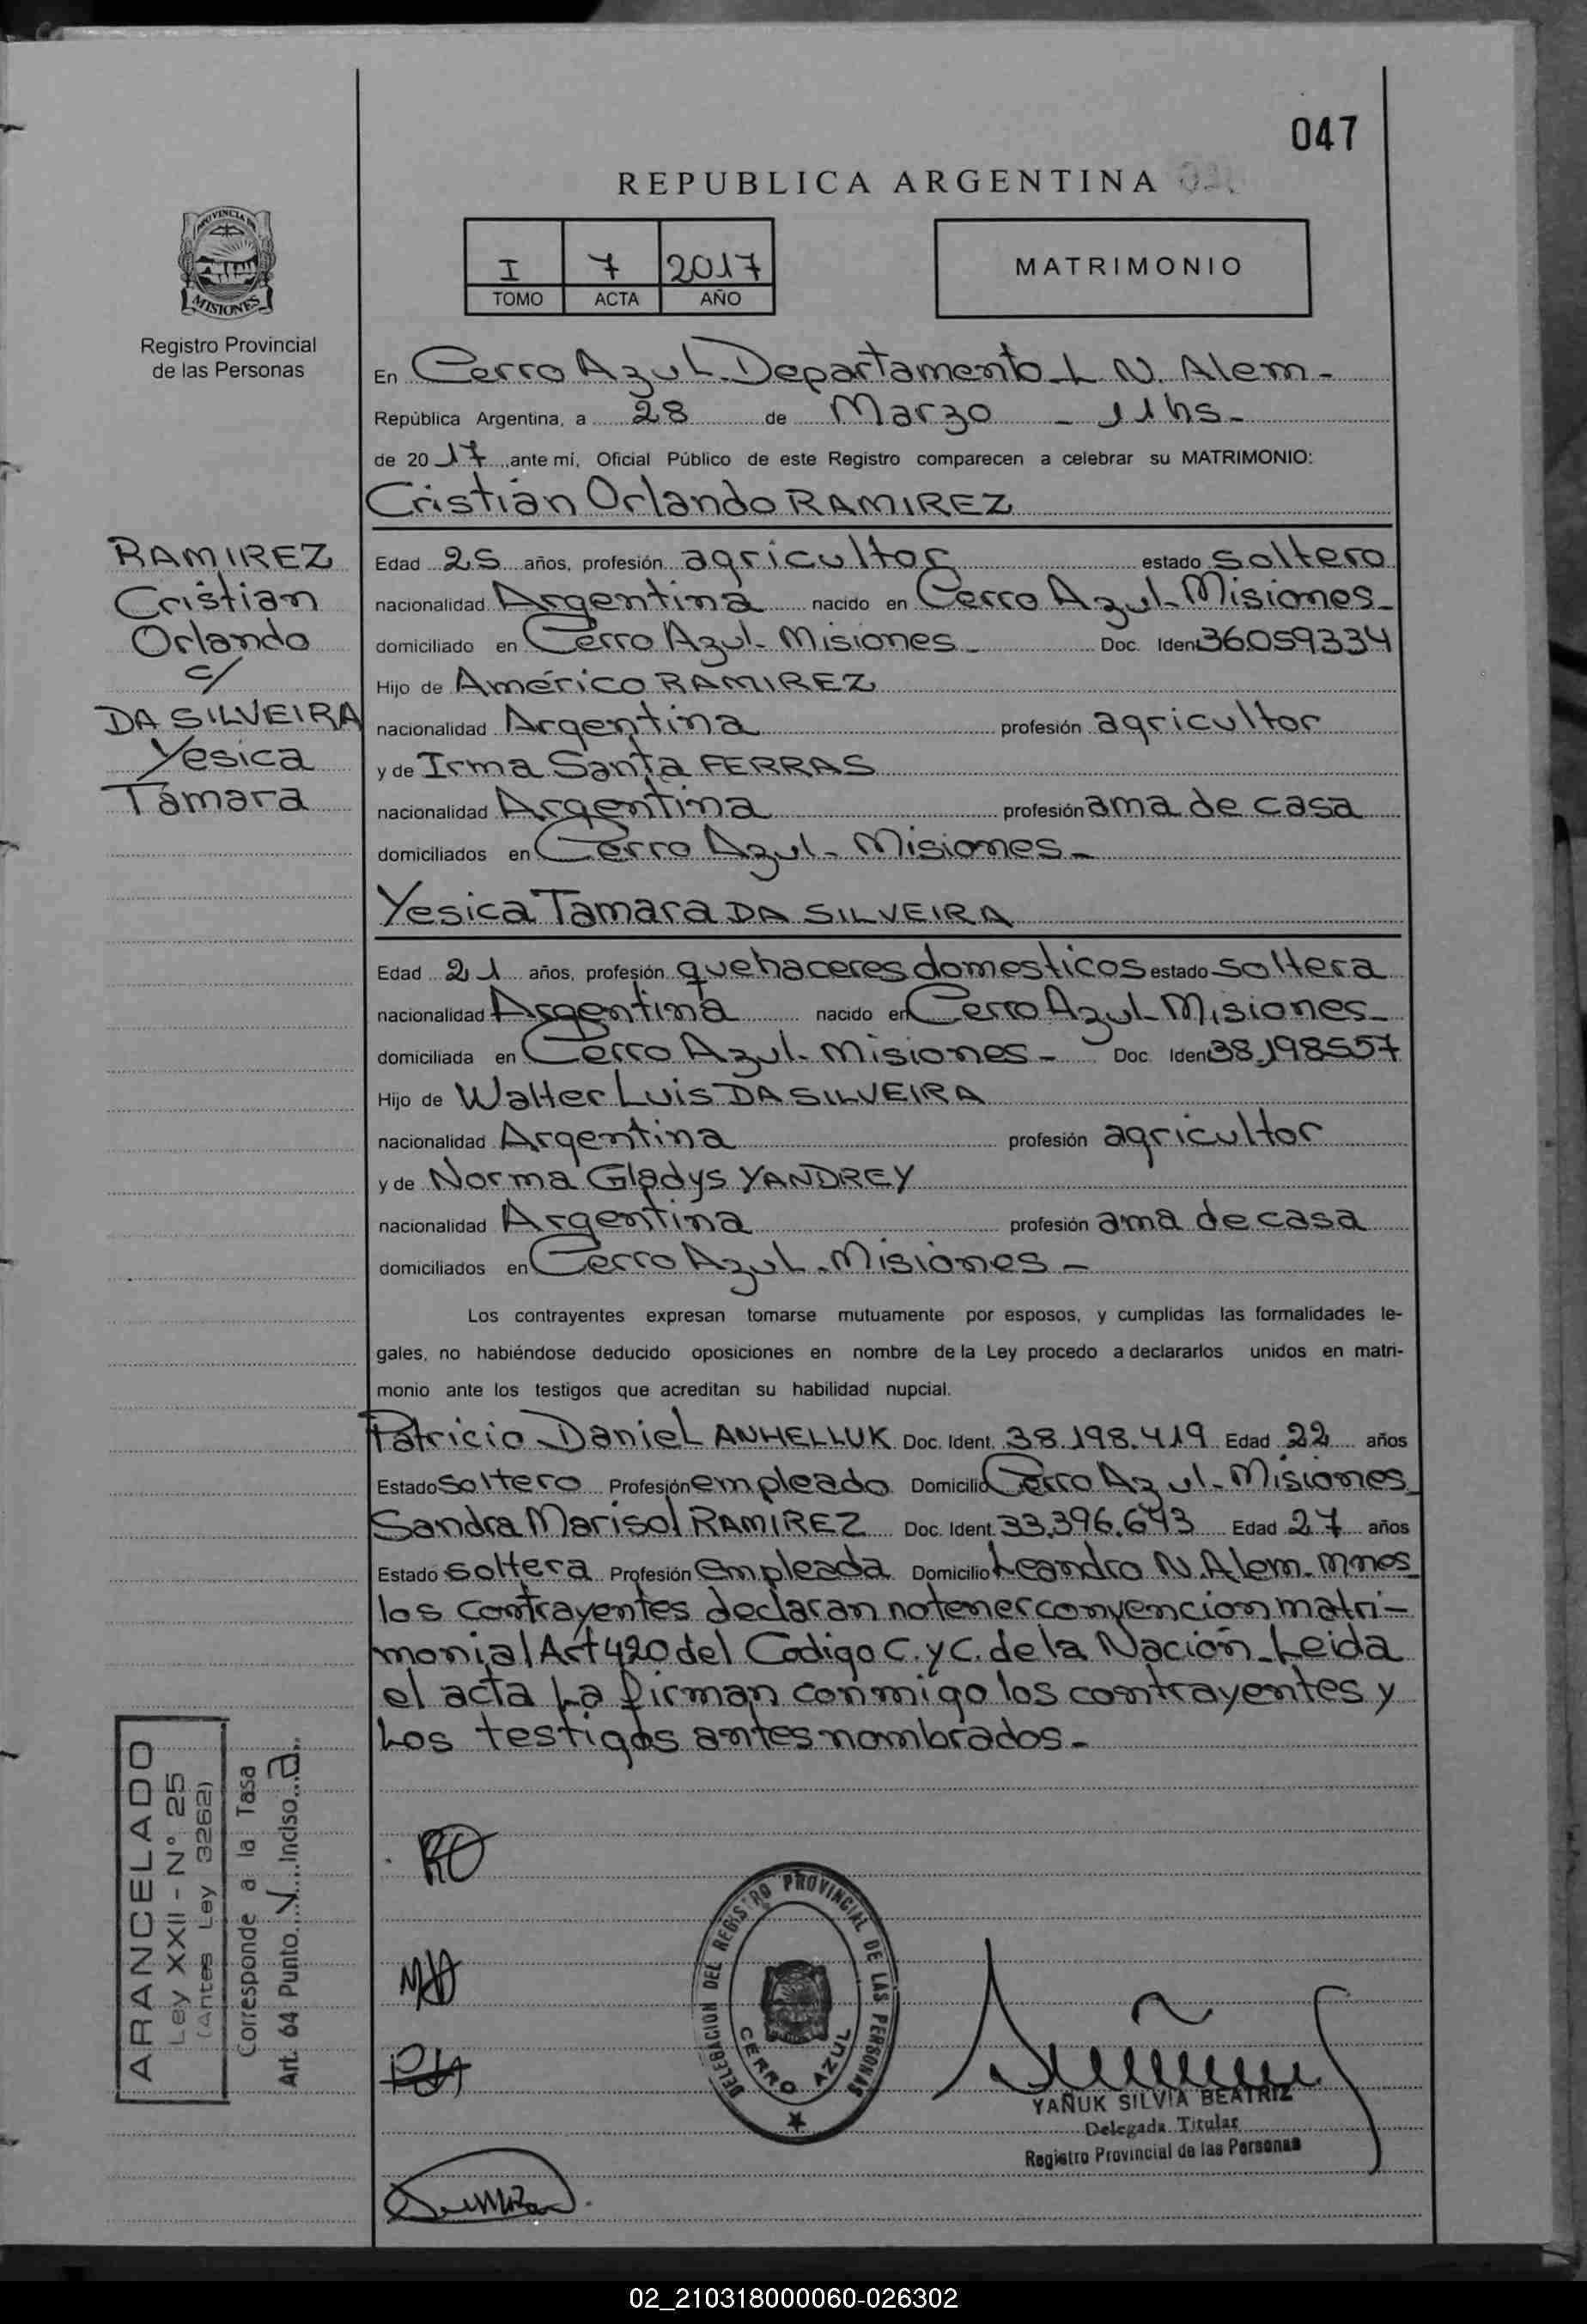 047
REPUBLICA ARGENTINA
PROVINCIA DE
MISIONES
Registro Provincial
de las Personas
I 7 2017
TOMO ACTA AÑO
MATRIMONIO
En Cerro Azul Departamento L N. Alem-
República Argentina, a 28 de Marzo - 11 hs-
de 2017, ante mí, Oficial Público de este Registro comparecen a celebrar su MATRIMONIO:
Cristian Orlando RAMIREZ
RAMIREZ
Cristian
Orlando
c/
DA SILVEIRA
Yesica
Tamara
Edad 25 años, profesión agricultor estado soltero
nacionalidad Argentina nacido en Cerro Azul-Misiones-
domiciliado en Cerro Azul-Misiones- Doc. Ident 36059334
Hijo de Américo RAMIREZ
nacionalidad Argentina profesión agricultor
y de Irma Santa FERRAS
nacionalidad Argentina profesión ama de casa
domiciliados en Cerro Azul-Misiones-
Yesica Tamara DA SILVEIRA
Edad 21 años, profesión quehaceres domesticos estado soltera
nacionalidad Argentina nacido en Cerro Azul-Misiones-
domiciliada en Cerro Azul-Misiones- Doc. Ident 38.198557
Hijo de Walter Luis DA SILVEIRA
nacionalidad Argentina profesión agricultor
y de Norma Gladys YANDREY
nacionalidad Argentina profesión ama de casa
domiciliados en Cerro Azul-Misiones-
Los contrayentes expresan tomarse mutuamente por esposos, y cumplidas las formalidades le-
gales, no habiéndose deducido oposiciones en nombre de la Ley procedo a declararlos unidos en matri-
monio ante los testigos que acreditan su habilidad nupcial.
Patricio Daniel ANHELLUK Doc. Ident. 38.198.419 Edad 22 años
Estado soltero Profesión empleado Domicilio Cerro Azul-Misiones
Sandra Marisol RAMIREZ Doc. Ident. 33.396.643 Edad 27 años
Estado soltera Profesión empleada Domicilio Leandro N. Alem-Mnes
los contrayentes declaran no tener convencion matri-
monial Art 420 del Codigo C. y C. de la Nación-Leida
el acta La firman conmigo los contrayentes y
Los testigos antes nombrados-
ARANCELADO
Ley XXII - N° 25
(Antes Ley 3262)
Corresponde a la Tasa
Art. 64 Punto V Inciso a
DELEGACION DEL REGISTRO PROVINCIAL DE LAS PERSONAS
CERRO AZUL
YAÑUK SILVIA BEATRIZ
Delegada Titular
Registro Provincial de las Personas
02_210318000060-026302